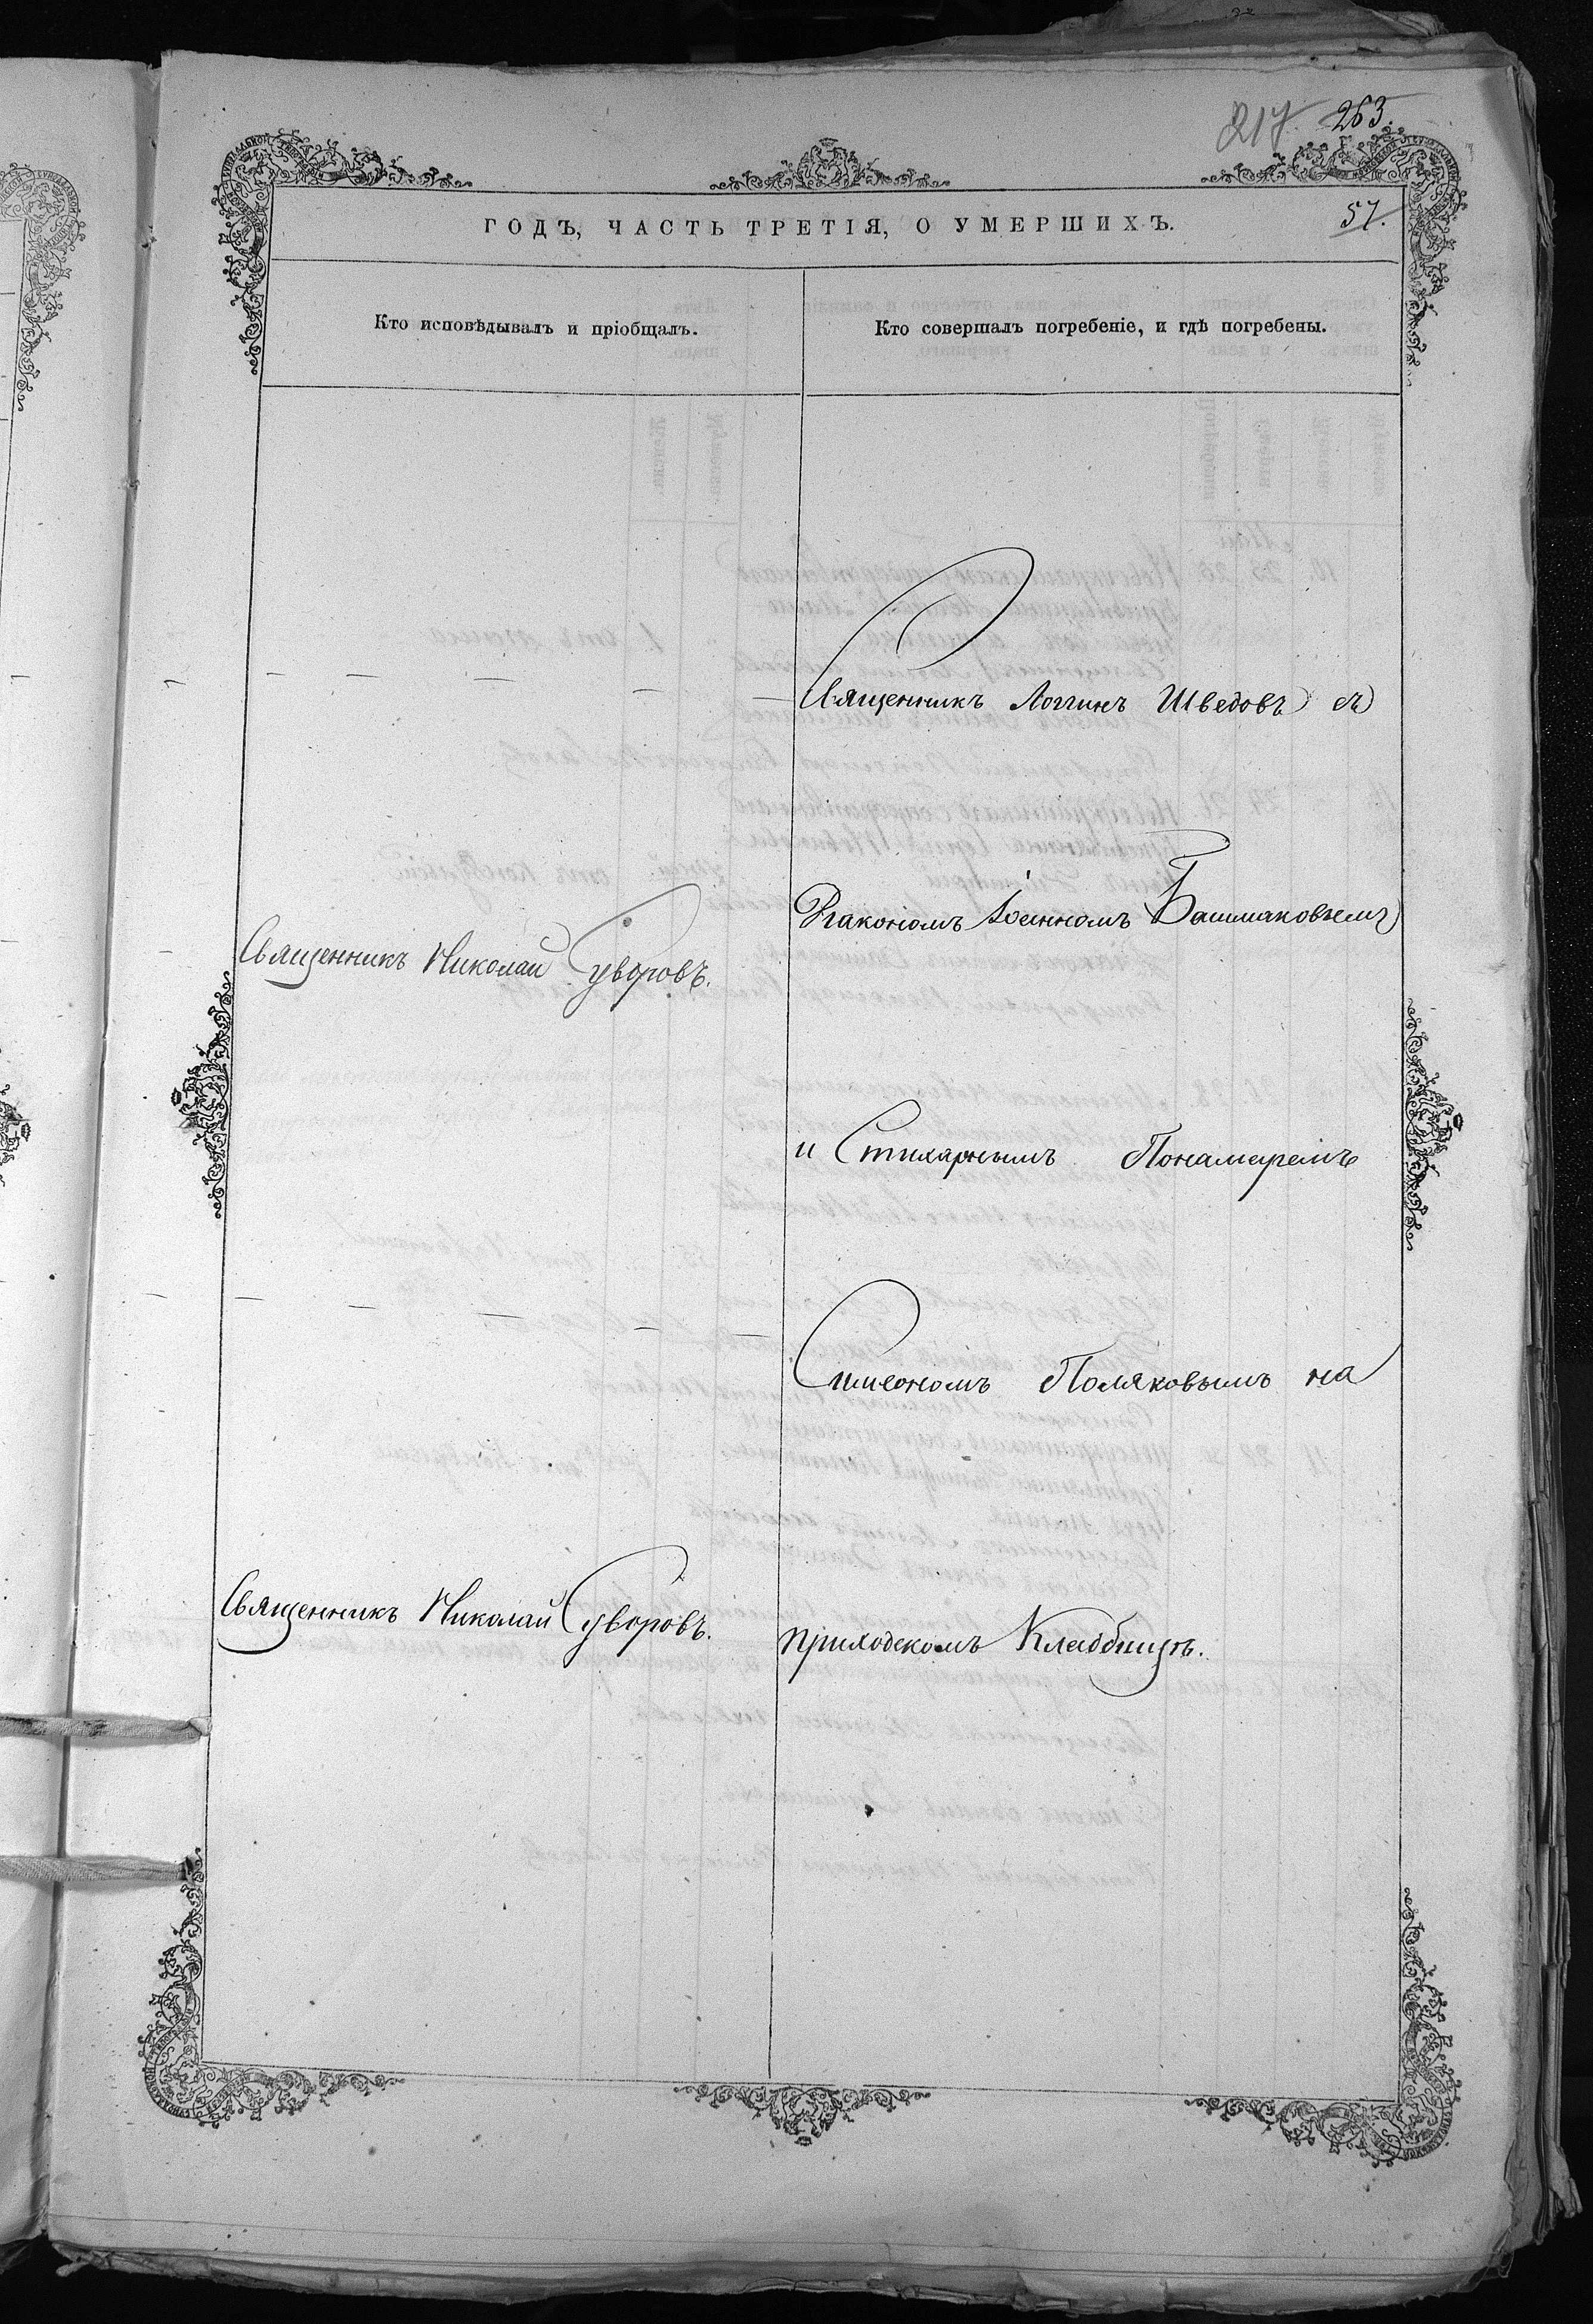 217 263.
ГОДЪ, ЧАСТЬ ТРЕТІЯ, О УМЕРШИХЪ.
57.
Кто исповѣдывалъ и пріобщалъ.
Кто совершалъ погребеніе, и гдѣ погребены.
Священникъ Логгинъ Шведовъ съ
Діакономъ Іоанномъ Башмаковымъ
Священникъ Николай Суворовъ.
и Стихарнымъ Понамаремъ
Симеономъ Поляковымъ на
Священникъ Николай Суворовъ.
приходскомъ Кладбищѣ.